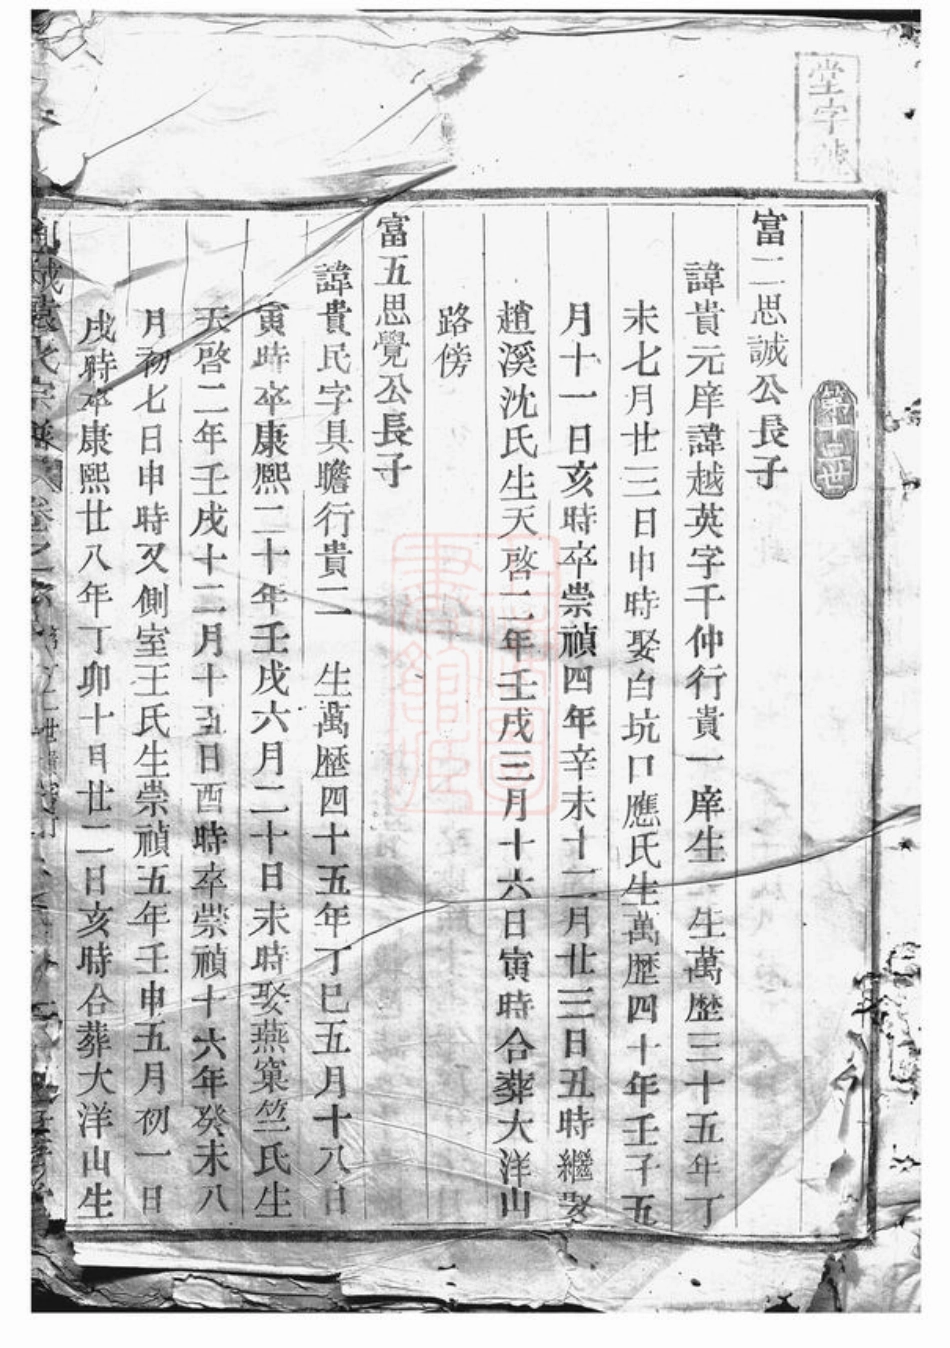 堂字號
第廿世
富二思誠公長子
諱貴元庠諱越英字千仲行貴一庠生 生萬歷三十五年丁
未七月廿三日申時娶白坑口應氏生萬歷四十年壬子五
月十一日亥時卒崇禎四年辛未十二月廿三日丑時繼娶
趙溪沈氏生天啓二年壬戌三月十六日寅時合葬大洋山
路傍
富五思覺公長子
諱貴民字具瞻行貴二 生萬歷四十五年丁巳五月十八日
寅時卒康熙二十年壬戌六月二十日未時娶燕窠竺氏生
天啓二年壬戌十二月十五日酉時卒崇禎十六年癸未八
月初七日申時又側室王氏生崇禎五年壬申五月初一日
戌時卒康熙廿八年丁卯十月廿二日亥時合葬大洋山生
氏宗譜 卷之 世